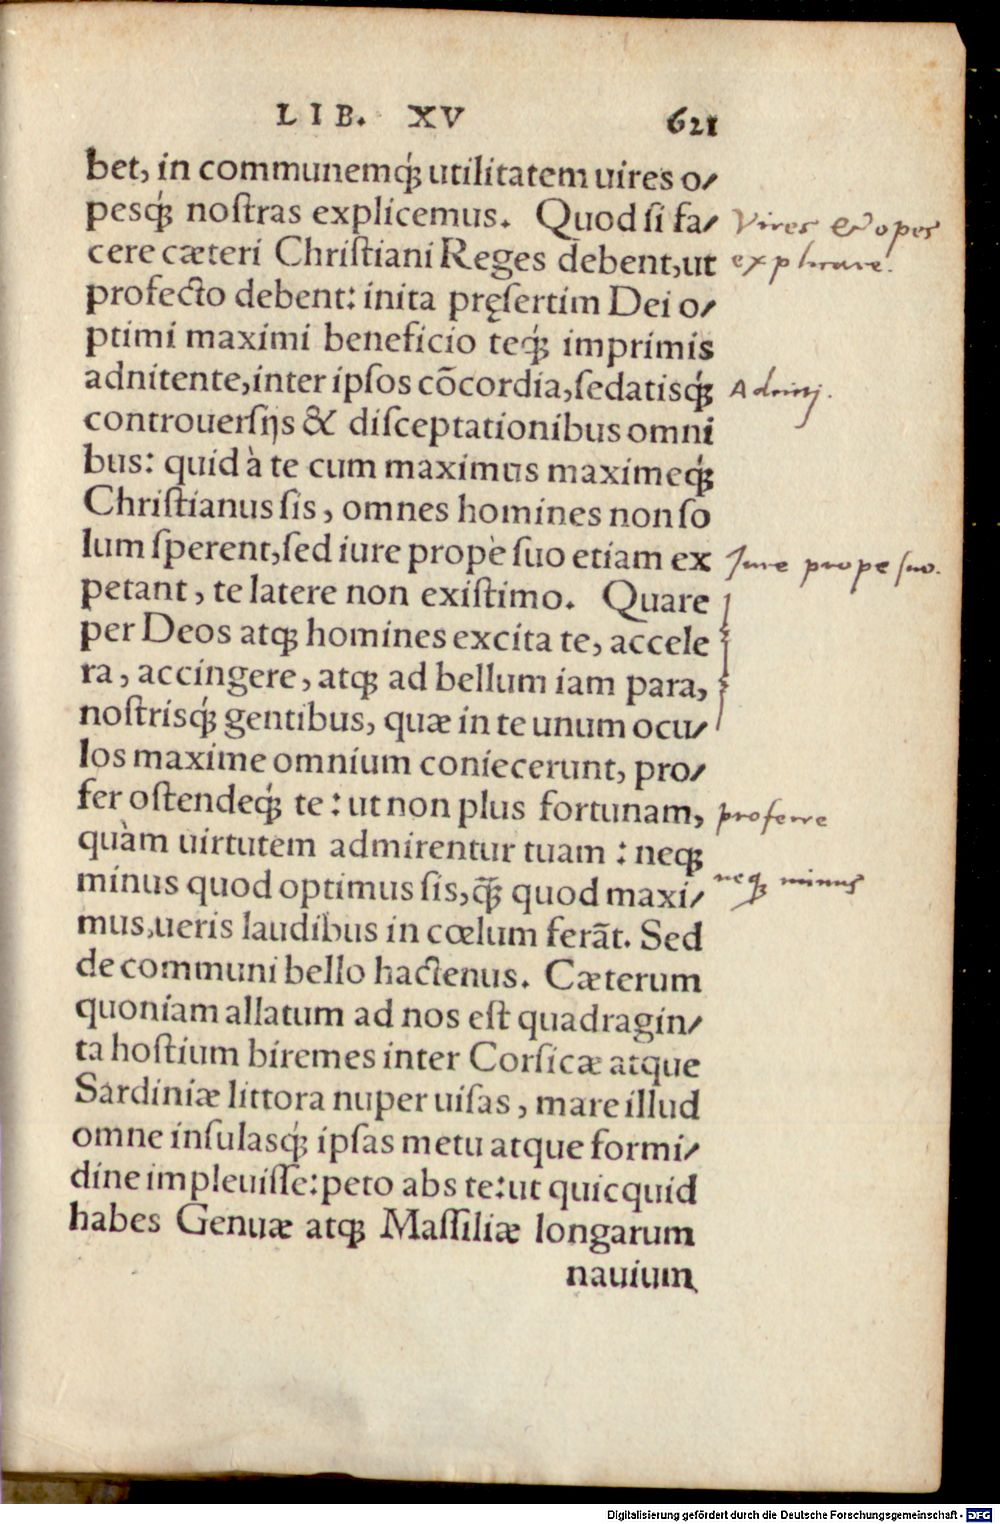 LIB. XV 621
bet, in communemq́; utilitatem uires o/
pesq́; noſtras explicemus. Quod ſi fa/
Vires & opes
cere cæteri Chriſtiani Reges debent, ut
explicare.
profecto debent: inita pręſertim Dei o/
ptimi maximi beneficio teq́; imprimis
adnitente, inter ipſos cõcordia, ſedatisq́;
Adniti.
controuerſijs & diſceptationibus omni
bus: quid à te cum maximus maximeq́;
Chriſtianus ſis, omnes homines non ſo
lum ſperent, ſed iure propè ſuo etiam ex
Jure prope ſuo.
petant, te latere non exiſtimo. Quare
per Deos atq; homines excita te, accele
ra, accingere, atq; ad bellum iam para,
noſtrisq́; gentibus, quæ in te unum ocu/
los maxime omnium coniecerunt, pro/
fer oſtendeq́; te: ut non plus fortunam,
proferre
quàm uirtutem admirentur tuam: neq;
minus quod optimus ſis, q̃; quod maxi/
neq; minus
mus, ueris laudibus in cœlum ferãt. Sed
de communi bello hactenus. Cæterum
quoniam allatum ad nos eſt quadragin/
ta hoſtium biremes inter Corſicæ atque
Sardiniæ littora nuper uiſas, mare illud
omne inſulasq́; ipſas metu atque formi/
dine impleuiſſe: peto abs te: ut quicquid
habes Genuæ atq; Maſſiliæ longarum
nauium
Digitalisierung gefördert durch die Deutsche Forschungsgemeinschaft - DFG